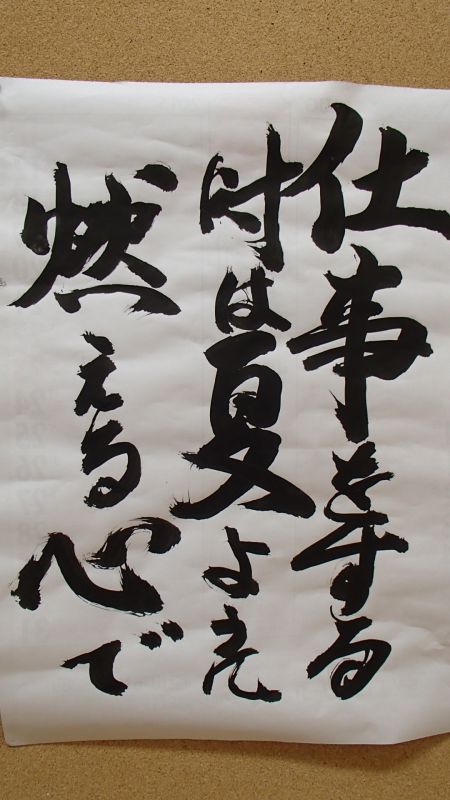 仕事をする
时は夏よ
燃える心で